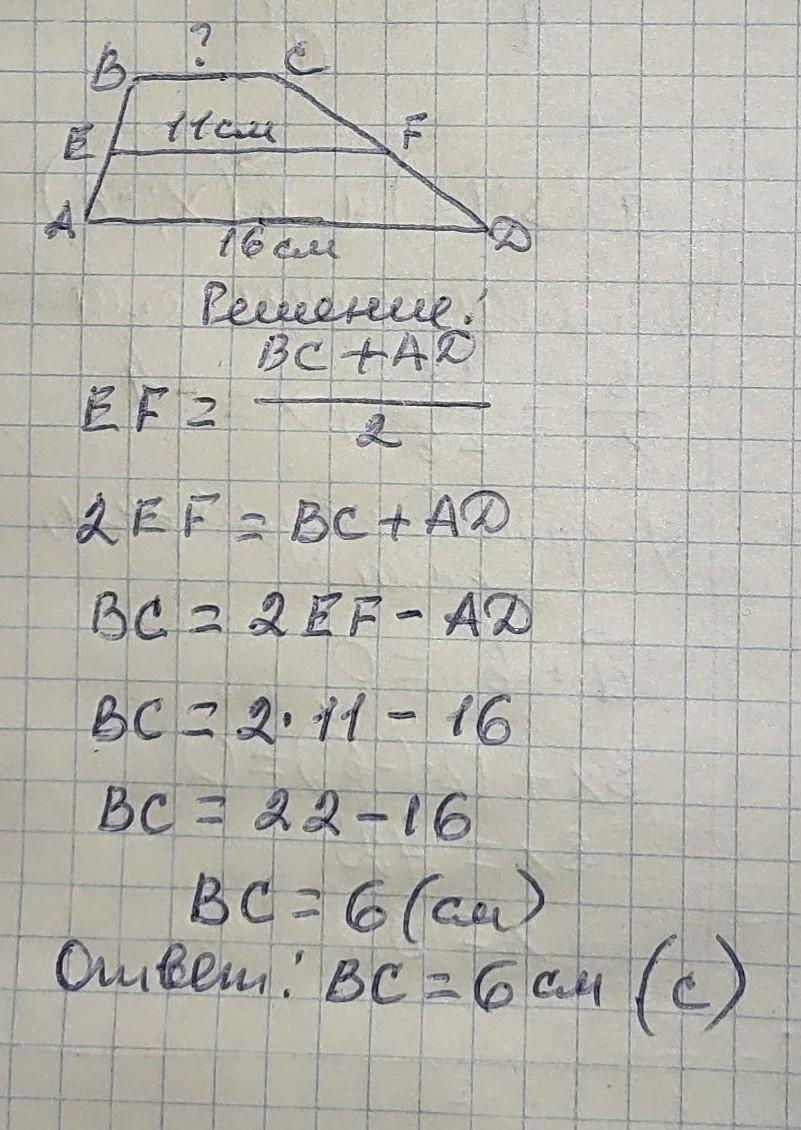 ?
B C
11см
E F
A D
16см
Решение:
EF = BC + AD / 2
2EF = BC + AD
BC = 2EF - AD
BC = 2·11 - 16
BC = 22 - 16
BC = 6 (см)
Ответ: BC = 6 см (с)